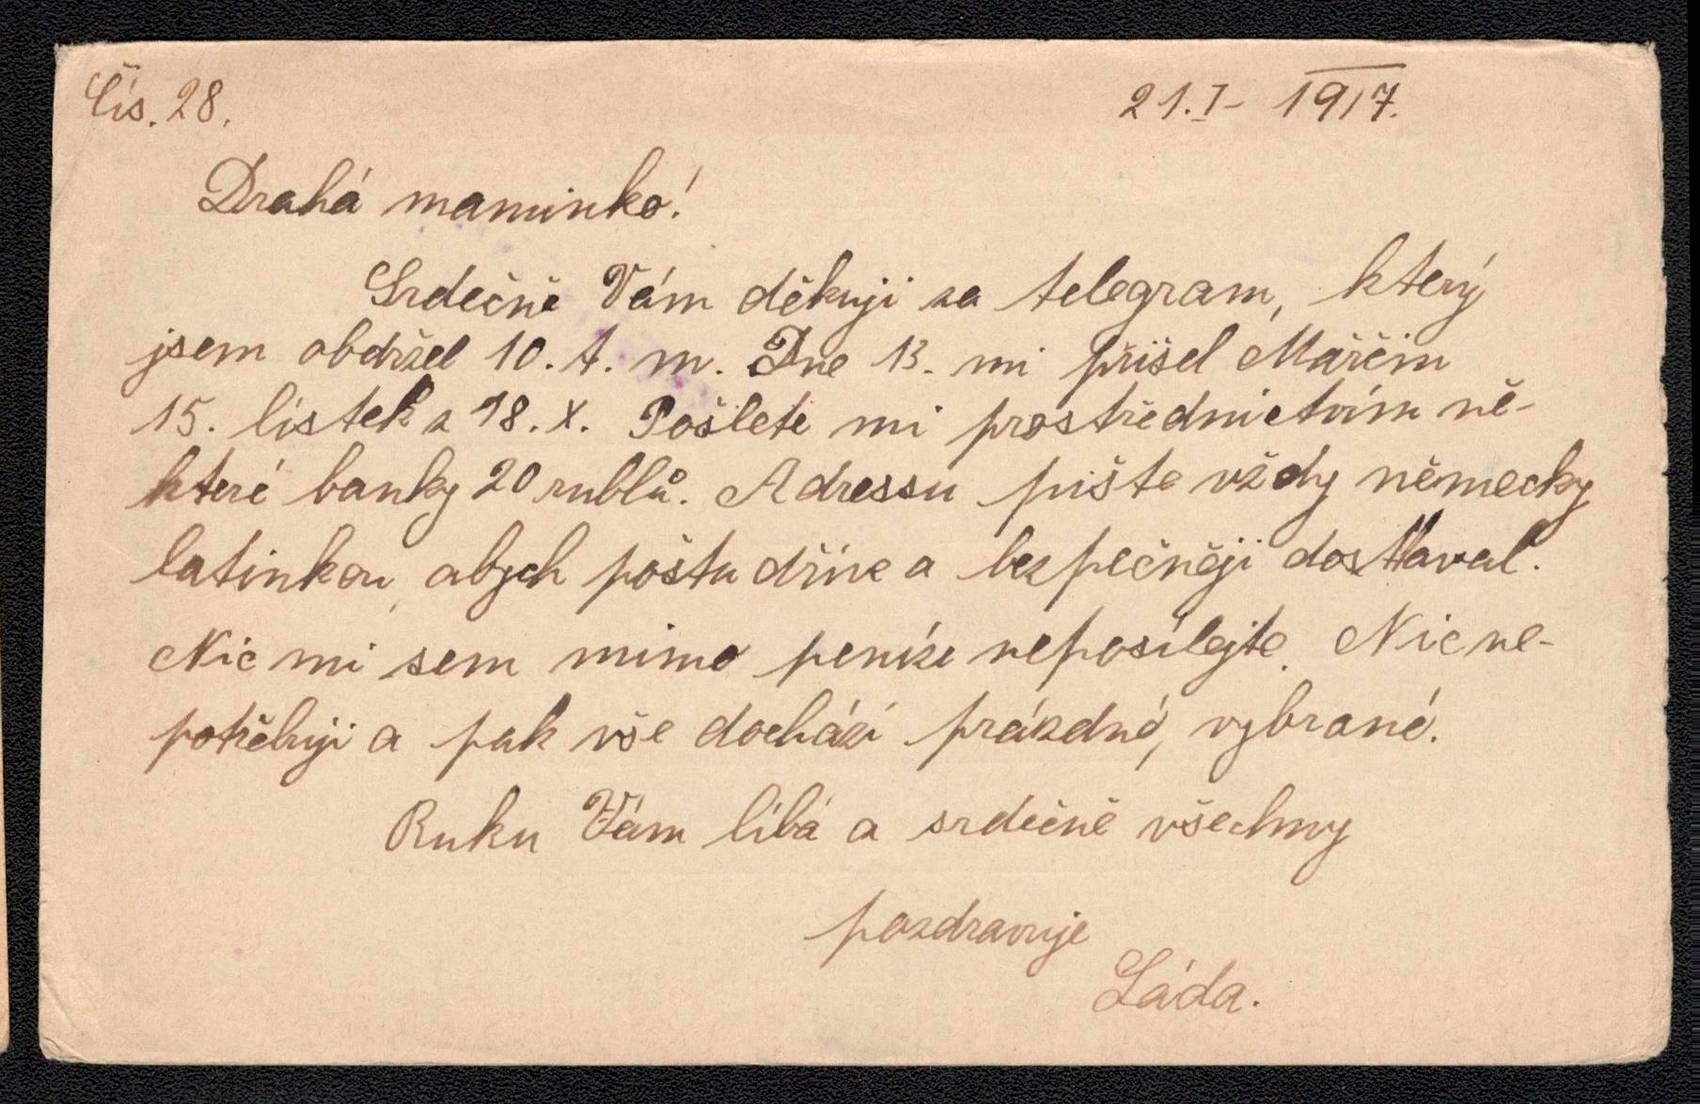 Čís. 28.
21. I – 1917.
Drahá maminko!
Srdečně Vám děkuji za telegram, který
jsem obdržel 10. t. m. Dne 13. mi přišel Mářčin
15. lístek z 18. X. Pošlete mi prostřednictvím ně-
které banky 20 rublů. Adressu pište vždy německy
latinkou, abych poštu dříve a bezpečněji dostával.
Nic mi sem mimo peníze neposílejte. Nic ne-
potřebuji a pak vše dochází prázdné, vybrané.
Ruku Vám líbá a srdečně všechny
pozdravuje
Láda.